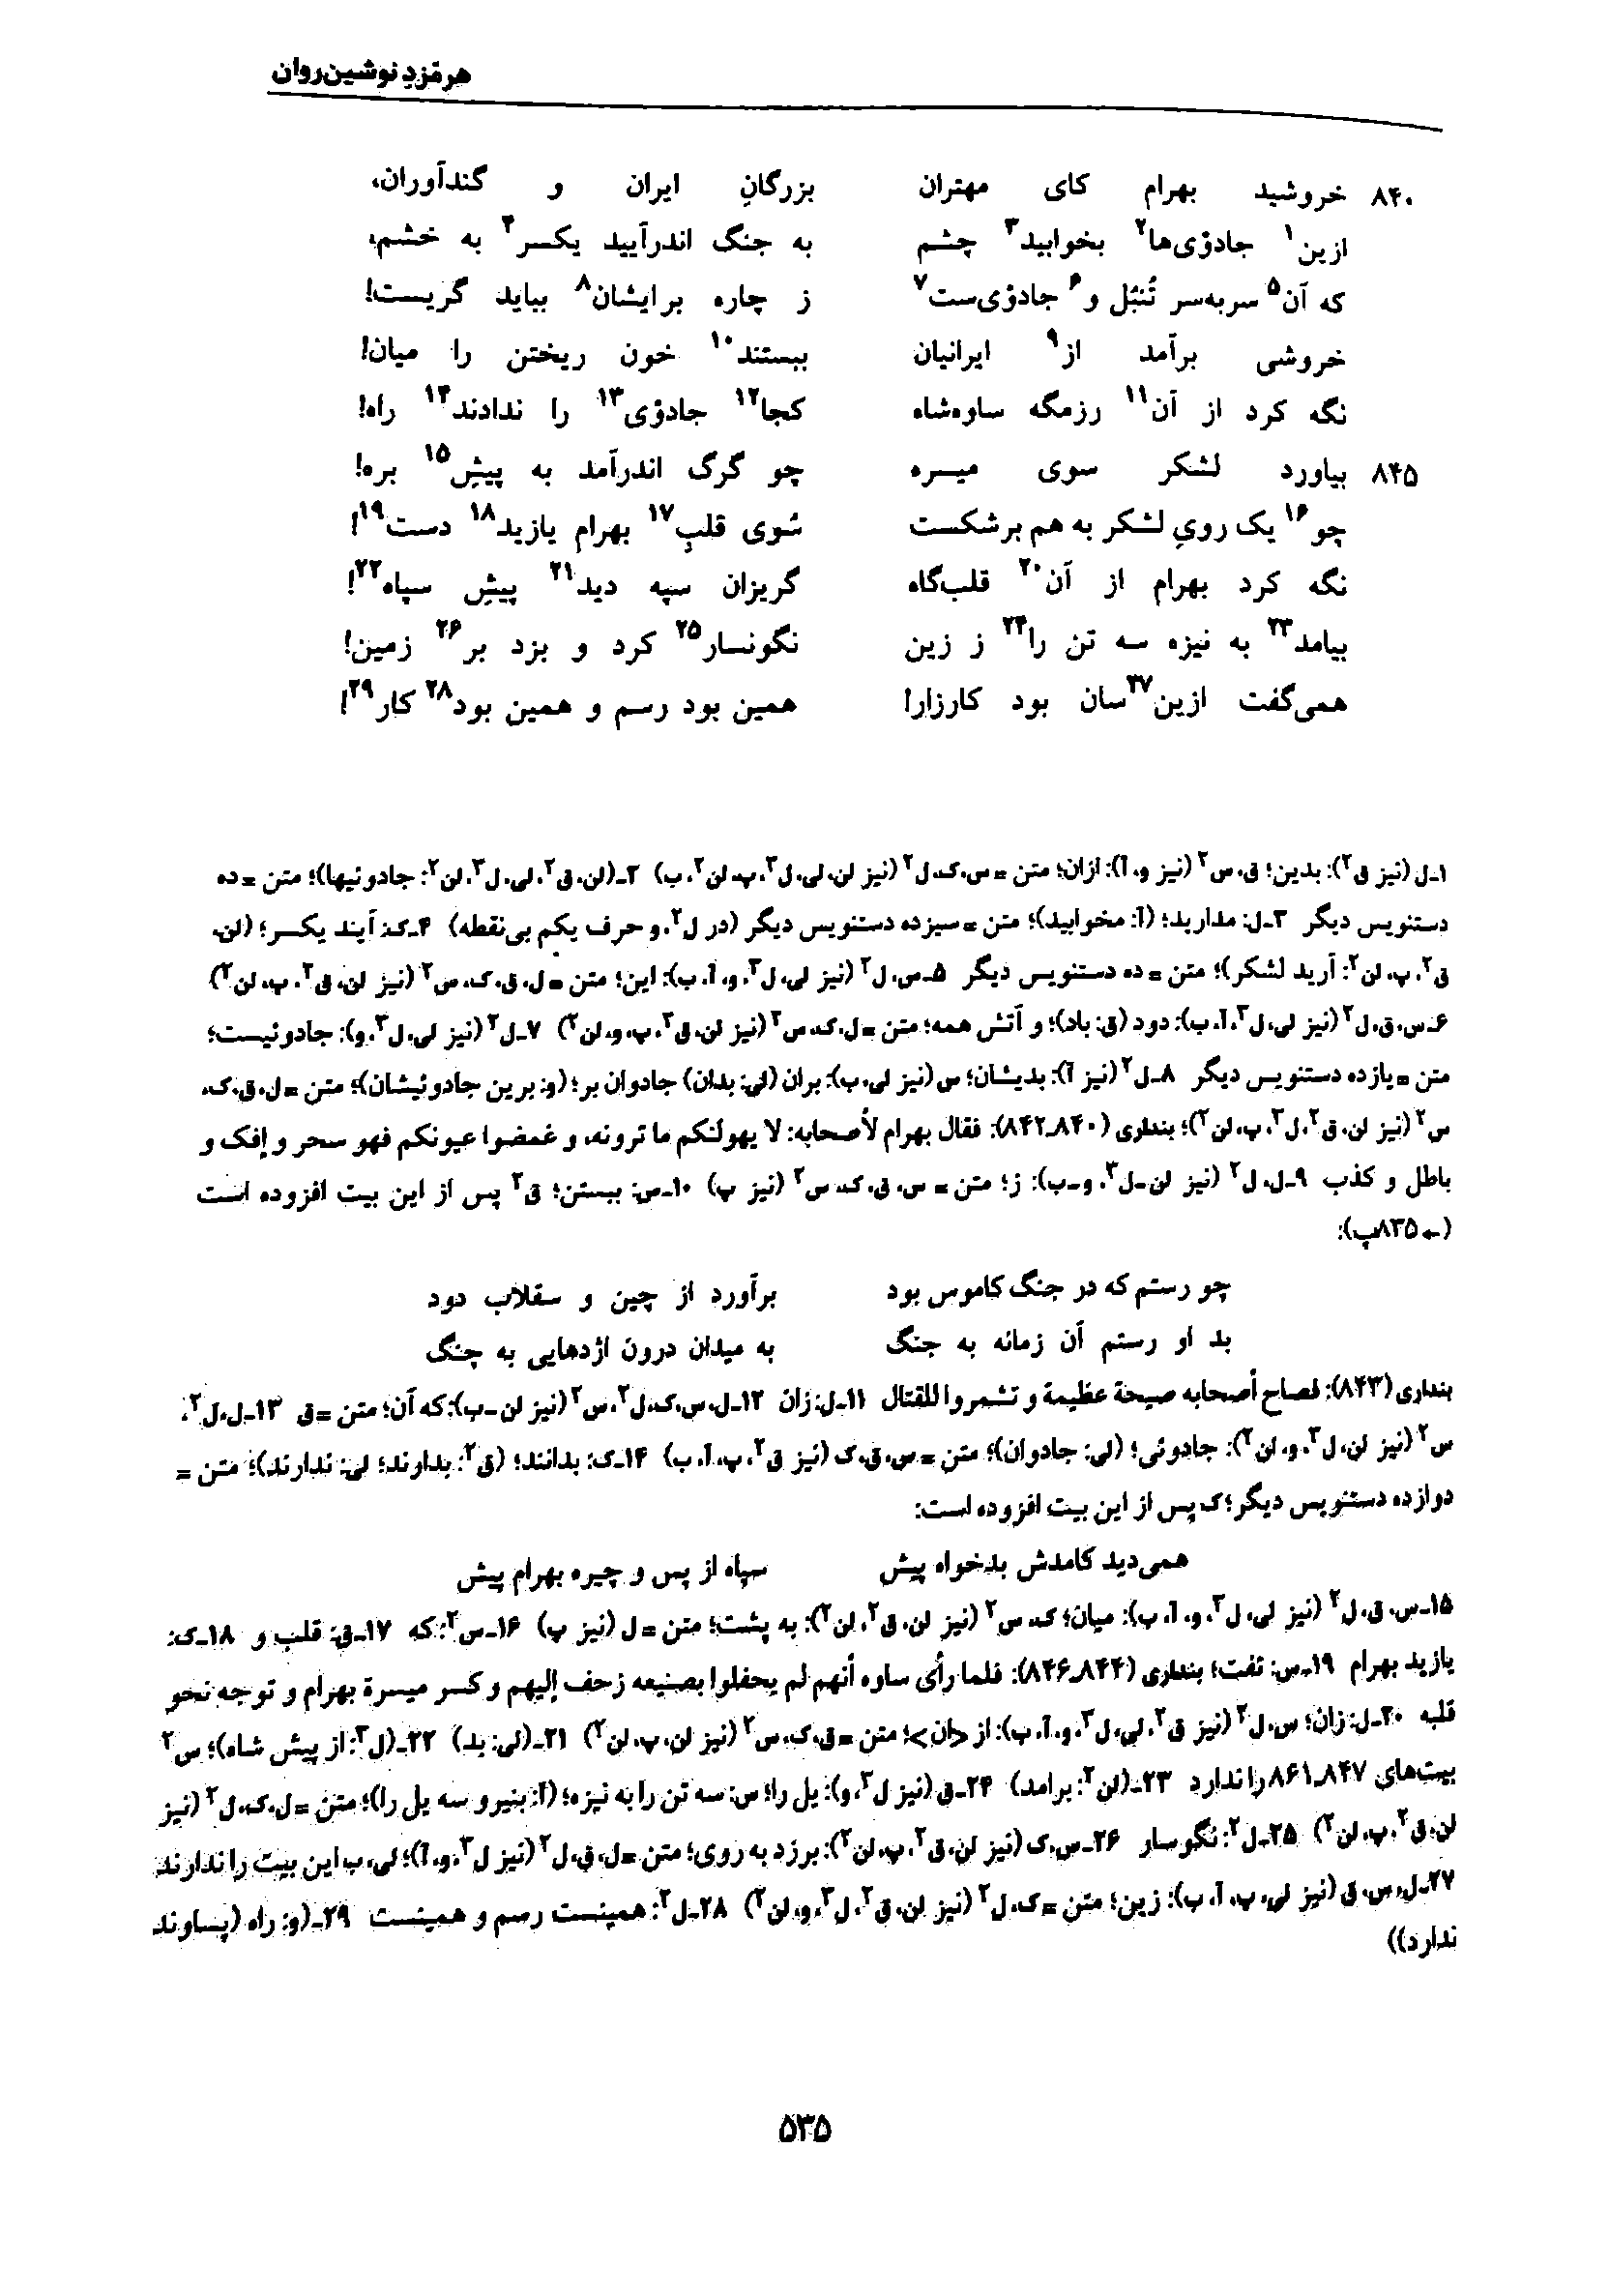 هرمزدِ نوشین‌روان
۸۴۰ خروشید بهرام کای مهتران بزرگانِ ایران و گندآوران،
ازین۱ جادوی‌ها۲ بخوابید۳ چشم به جنگ اندرآیید یکسر۴ به خشم،
که آن۵ سربه‌سر تُنبُل و۶ جادوی‌ست۷ ز چاره برایشان۸ بباید گریست!
خروشی برآمد از۹ ایرانیان ببستند۱۰ خون ریختن را میان!
نگه کرد از آن۱۱ رزمگه ساوه‌شاه کجا۱۲ جادوی۱۳ را ندادند۱۴ راه!
۸۴۵ بیاورد لشکر سوی میسره چو گرگ اندرآمد به پیشِ۱۵ بره!
چو۱۶ یک رویِ لشکر به هم برشکست سُوی قلبِ۱۷ بهرام یازید۱۸ دست۱۹!
نگه کرد بهرام از آن۲۰ قلب‌گاه گریزان سپه دید۲۱ پیشِ سپاه۲۲!
بیامد۲۳ به نیزه سه تن را۲۴ ز زین نگونسار۲۵ کرد و بزد بر۲۶ زمین!
همی‌گفت ازین۲۷سان بود کارزار! همین بود رسم و همین بود۲۸ کار۲۹!
۱ـ ل (نیز ق۲): بدین؛ ق، س۲ (نیز و، آ): ازان؛ متن = س، ک، ل۲ (نیز لن، لی، ل۳، پ، لن۲، ب) ۲ـ (لن، ق۲، لی، ل۳، لن۲: جادوئیها)؛ متن = ده
دستنویس دیگر ۳ـ ل: مدارید؛ (آ: مخوابید)؛ متن = سیزده دستنویس دیگر (در ل۲، و حرف یکم بی‌نقطه) ۴ـ ک: آیند یکسر؛ (لن،
ق۲، پ، لن۲: آرید لشکر)؛ متن = ده دستنویس دیگر ۵ـ س، ل۲ (نیز لی، ل۳، و، آ، ب): این؛ متن = ل، ق، ک، س۲ (نیز لن، ق۲، پ، لن۲)
۶ـ س، ق، ل۲ (نیز لی، ل۳، آ، ب): دود (ق: باد)؛ و آتش همه؛ متن = ل، ک، س۲ (نیز لن، ق۲، پ، و، لن۲) ۷ـ ل۲ (نیز لی، ل۳، و): جادونیست؛
متن = یازده دستنویس دیگر ۸ـ ل۲ (نیز آ): بدیشان؛ س (نیز لی، ب): بران (لی: بدان) جادوان بر؛ (و: برین جادوئیشان)؛ متن = ل، ق، ک،
س۲ (نیز لن، ق۲، ل۳، پ، لن۲)؛ بنداری (۸۴۰ـ۸۴۲): فقال بهرام لأصحابه: لا یهولنکم ما ترونه، و غمضوا عیونکم فهو سحر و إفک و
باطل و کذب ۹ـ ل، ل۲ (نیز لن ـ ل۳، و ـ ب): ز؛ متن = س، ق، ک، س۲ (نیز پ) ۱۰ـ س: ببستن؛ ق۲ پس از این بیت افزوده است
(←۸۳۵پ):
چو رستم که در جنگ کاموس بود برآورد از چین و سقلاب دود
بد او رستم آن زمانه به جنگ به میدان درون اژدهایی به چنگ
بنداری (۸۴۳): فصاح أصحابه صیحة عظیمة و تشمروا للقتال ۱۱ـ ل: زان ۱۲ـ ل، س، ک، ل۲، س۲ (نیز لن ـ ب): که آن؛ متن = ق ۱۳ـ ل، ل۲،
س۲ (نیز لن، ل۳، و، لن۲): جادوئی؛ (لی: جادوان)؛ متن = س، ق، ک (نیز ق۲، پ، آ، ب) ۱۴ـ ک: بدانند؛ (ق۲: بدارند؛ لی: ندارند)؛ متن =
دوازده دستنویس دیگر؛ ک پس از این بیت افزوده است:
همی‌دید کامدش بدخواه پیش سپاه از پس و چیره بهرام پیش
۱۵ـ س، ق، ل۲ (نیز لی، ل۳، و، آ، ب): میان؛ ک، س۲ (نیز لن، ق۲، لن۲): به پشت؛ متن = ل (نیز پ) ۱۶ـ س۲: که ۱۷ـ ق: قلب و ۱۸ـ ک:
یازید بهرام ۱۹ـ س: تفت؛ بنداری (۸۴۴ـ۸۴۶): فلما رأی ساوه أنهم لم یحفلوا بصنیعه زحف إلیهم و کسر میسرة بهرام و توجه نحو
قلبه ۲۰ـ ل: زان؛ س، ل۲ (نیز ق۲، لی، ل۳، و، آ، ب): از <ان>؛ متن = ق، ک، س۲ (نیز لن، پ، لن۲) ۲۱ـ (لی: بد) ۲۲ـ (ل۳: از پیش شاه)؛ س۲
بیت‌های ۸۴۷ـ۸۶۱ را ندارد ۲۳ـ (لن۲: برامد) ۲۴ـ ق (نیز ل۳، و): یل را؛ س: سه تن را به نیزه؛ (آ: بنیرو سه یل را)؛ متن = ل، ک، ل۲ (نیز
لن، ق۲، پ، لن۲) ۲۵ـ ل۲: نگوسار ۲۶ـ س، ک (نیز لن، ق۲، پ، لن۲): برزد به روی؛ متن = ل، ق، ل۲ (نیز ل۳، و، آ)؛ لی، ب این بیت را ندارند
۲۷ـ ل، س، ق (نیز لی، پ، آ، ب): زین؛ متن = ک، ل۲ (نیز لن، ق۲، ل۳، و، لن۲) ۲۸ـ ل۲: همینست رسم و همینست ۲۹ـ (و: راه (پساوند
ندارد))
۵۳۵